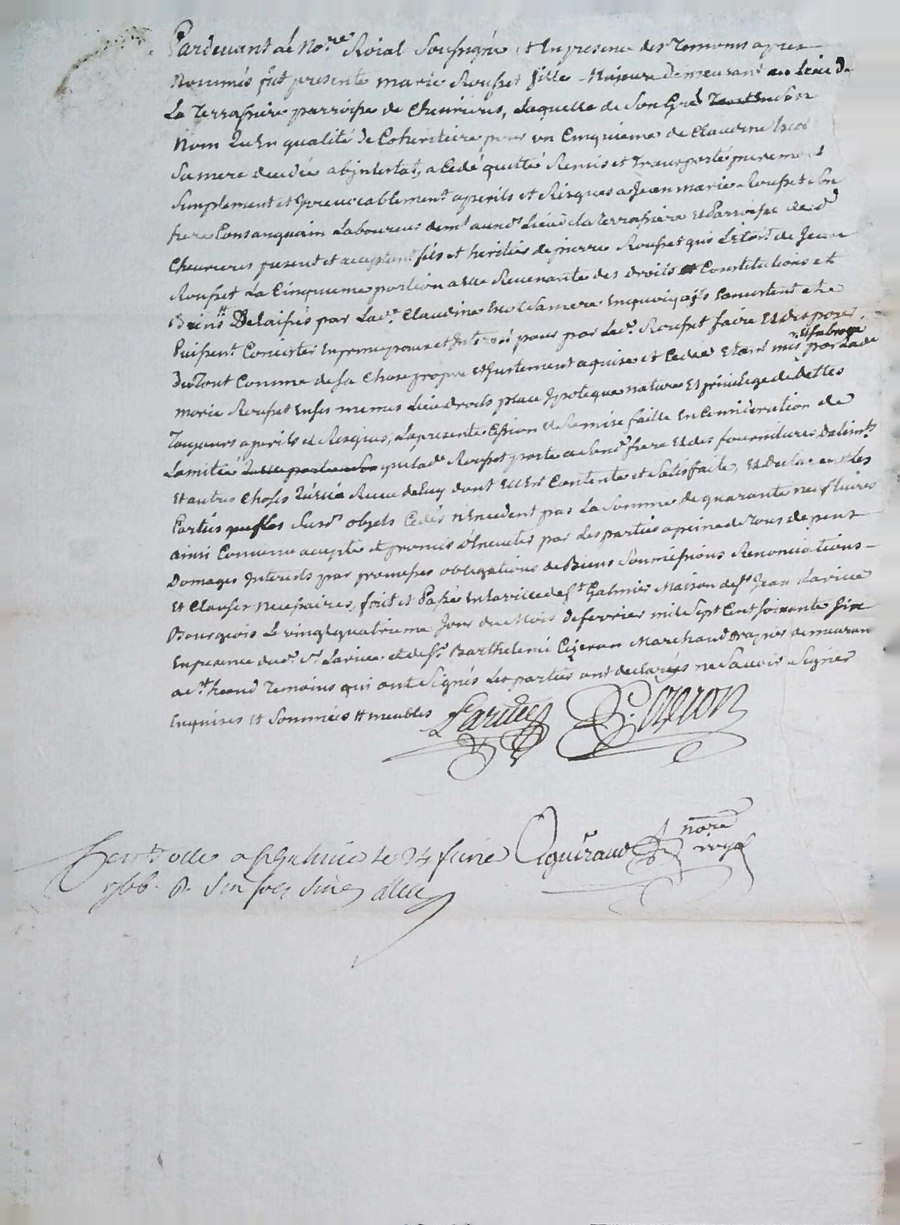 Pardevant Le No.re Roial Soussigné et En presence des Temoins apres
Nommés fut presente marie Rousset fille Majeure Demeurant au Lieu de
La Terrassiere parroisse de Chevrieres, Laquelle de Son Gré
Nom qu'En qualité de Coheritiere pour un Cinquieme de Claudine
Sa mere decedée abjntestat, a Cedé quitté Remis et Transporté purement
Simplement et jrrevocablement aperils et Risques a Jean marie Rousset Son
frere Consanguain Laboureur dem.t aud. Lieu de la terrassiere et Parroisse de d.
Chevrieres present et acceptant fils et heritier de pierre Rousset qui L'étoit de Jean
Rousset La Cinquieme portion a elle Revenante des droits et Constitutions et
Biens Delaissés par Lad. Claudine sa mere En quoi qu'jls Consistent et
Puissent Consister En principaux et Interets pour par Led. Rousset faire et disposer
Du Tout Comme de sa Chose propre et justement aquise et Cedée Etant mis et subrogé par Lade
marie Rousset En ses memes Lieu droits place hypoteque nature Et privilege de Dettes
Toujours a perils et Risques, La presente Cession et Remise faitte En Consideration de
L'amitié que lad. Rousset porte a Sond. frere Et des fournitures D'alim.ts
Et autres Choses qu'elle a Reçu de Luy dont Elle Est Contente et Satisfaite, Et
Parties Susd. objets Cedés n'Excedent pas La Somme de quarante neuf Livres
ainsi Convenu accepté et promis d'Executer par Les parties a peine de Tous depens
Domages Interests par promesses obligations de Biens Soumissions Renonciations
Et Clauses Necessaires, fait et Passé En la ville de S.t Galmier Maison de S.r Jean Larive
Bourgeois Le vingt quatrieme Jour du Mois de fevrier mil Sept Cent soixante Six
En presence dud. S.r Larive et de S.r Barthelemi Cizeron Marchand demeurant
a S.t Temoins qui ont Signés Les parties ont declarés ne Savoir Signer
Enquises et Sommées Et meubles Larive Cizeron
a S.t Galmier le 24 fevrier
1766 R. Six
no.re
royal